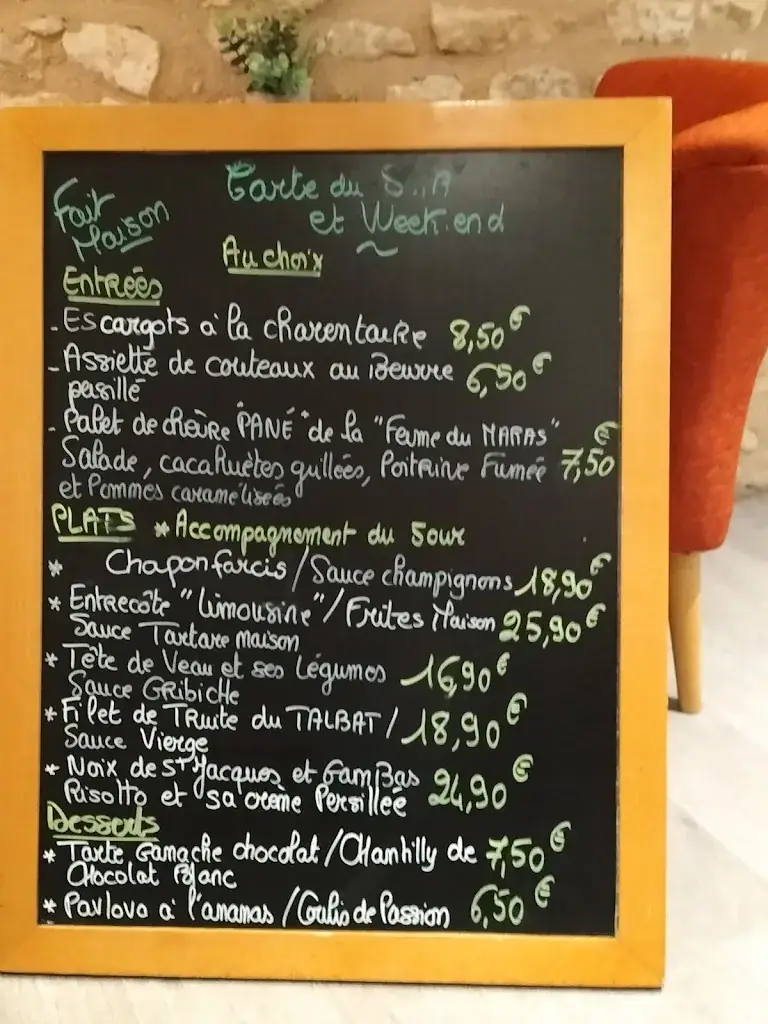 Fait
Maison
Carte du
et Week-end
Au choix
Entrées
- Escargots à la charentaise 8,50€
- Assiette de couteaux au Beurre 6,50€
persillé
- Palet de chèvre "PANÉ" de la "Ferme du MARAS"
Salade, cacahuètes grillées, Poitrine Fumée 7,50€
et Pommes caramélisées
PLATS * Accompagnement du Jour
* Chapon farcis / Sauce champignons 18,90€
* Entrecôte "Limousine" / Frites Maison 25,90€
Sauce Tartare maison
* Tête de Veau et ses Légumes 16,90€
Sauce GRIBICHE
* Filet de Truite du TALBAT / 18,90€
Sauce Vierge
* Noix de ST Jacques et GamBas 24,90€
Risotto et sa crème Persillée
Desserts
* Tarte Ganache chocolat / Chantilly de 7,50€
Chocolat Blanc
* Pavlova à l'ananas / Coulis de Passion 6,50€